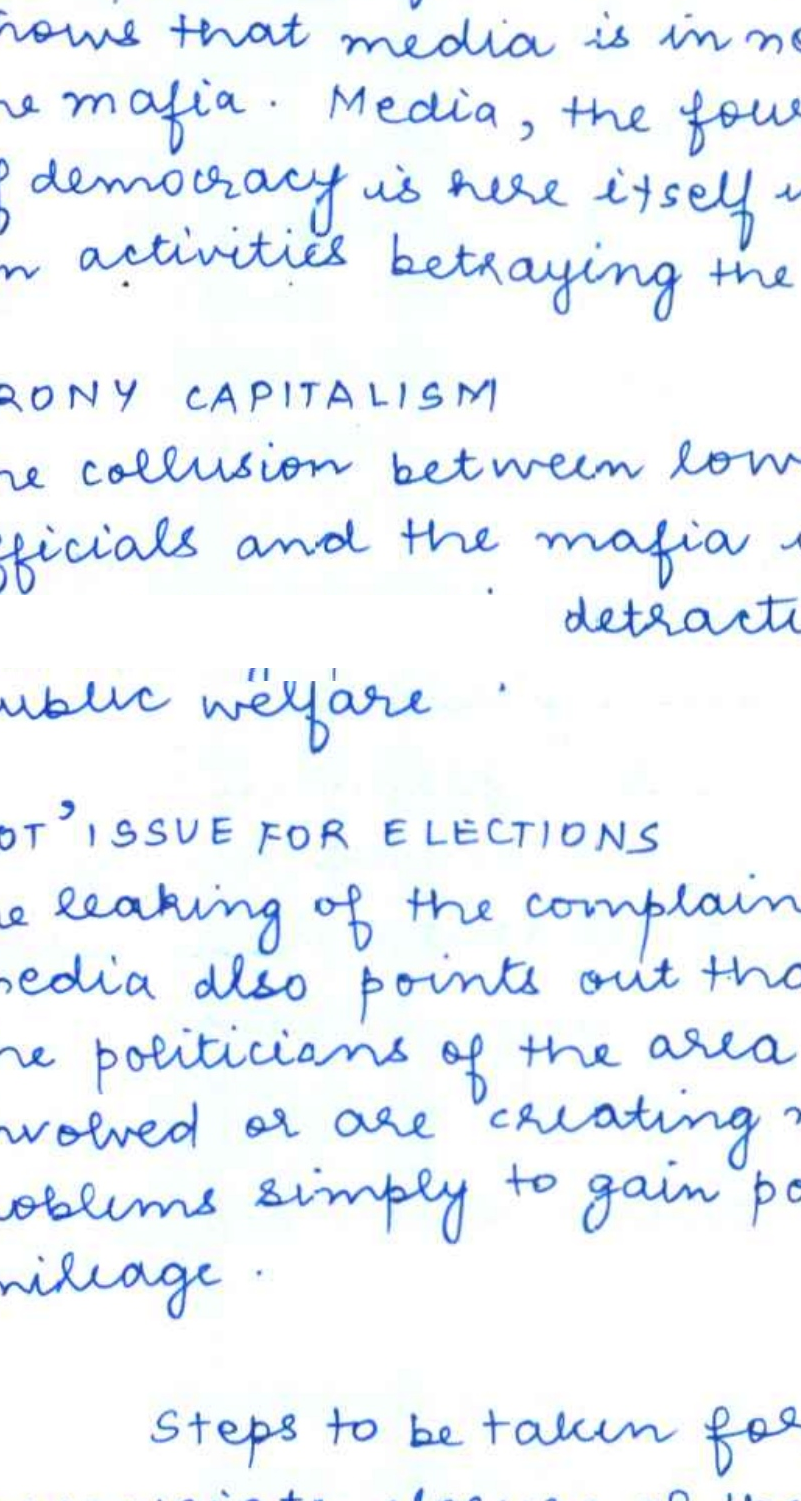 hows that media is in ne
he mafia. Media, the four
f democracy is here itself
n activities betraying the
RONY CAPITALISM
he collusion between low
fficials and the mafia
detracti
ublic welfare.
OT' ISSUE FOR ELECTIONS
e leaking of the complain
edia also points out tha
he politicians of the area
nvolved or are creating
oblems simply to gain po
mileage.
Steps to be taken for